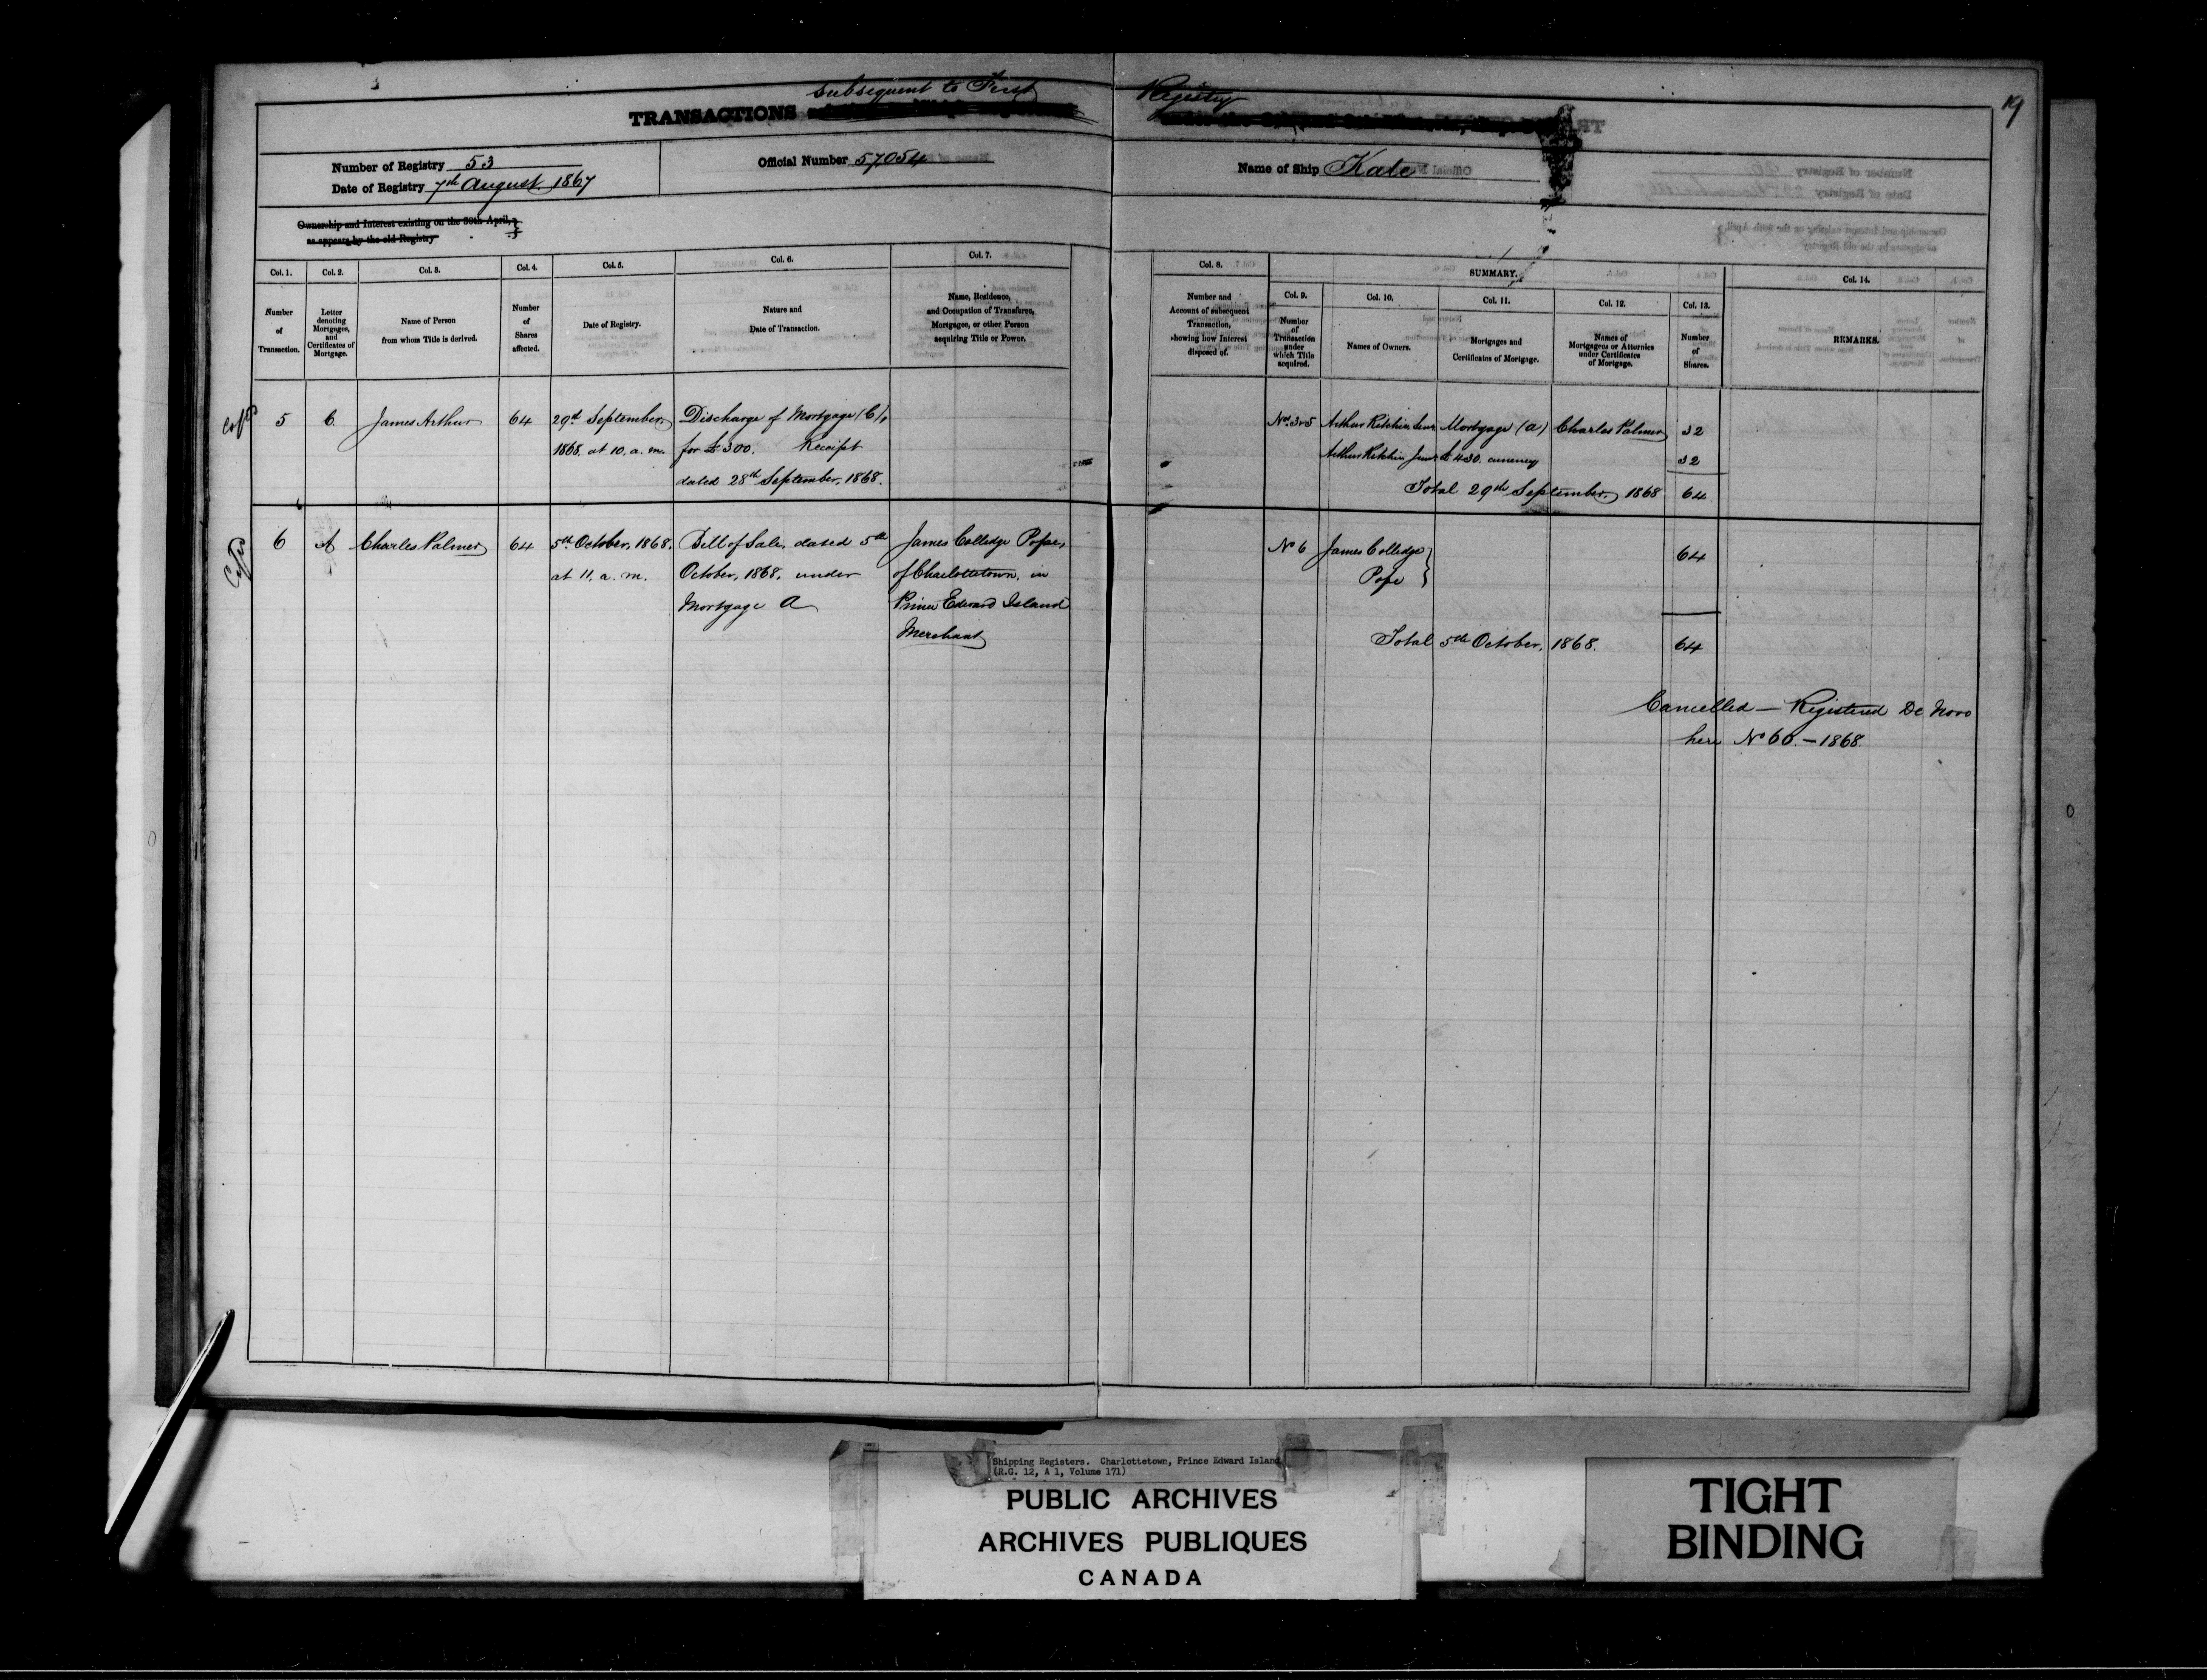 19
Subsequent to First Registry
TRANSACTIONS
Number of Registry 53
Date of Registry 7th August, 1867
Official Number 57,054
Name of Ship Kate
Ownership and Interest existing on the 30th April,
as appears by the old Registry
Col. 1. Col. 2. Col. 3. Col. 4. Col. 5. Col. 6. Col. 7. Col. 8. SUMMARY. Col. 14.
Col. 9. Col. 10. Col. 11. Col. 12. Col. 13.
Number
of
Transaction.
Letter
denoting
Mortgages,
and
Certificates of
Mortgage.
Name of Person
from whom Title is derived.
Number
of
Shares
affected.
Date of Registry.
Nature and
Date of Transaction.
Name, Residence,
and Occupation of Transferee,
Mortgagee, or other Person
acquiring Title or Power.
Number and
Account of subsequent
Transaction,
showing how Interest
disposed of.
Number
of
Transaction
under
which Title
acquired.
Names of Owners.
Mortgages and
Certificates of Mortgage.
Names of
Mortgagees or Attornies
under Certificates
of Mortgage.
Number
of
Shares.
REMARKS.
5 C. James Arthur 64 29th September, Discharge of Mortgage (C),
1868, at 10, a. m. for £300. Receipt
dated 28th September, 1868.
Nos. 3 & 5 Arthur Ritchie, Senr Mortgage (A) Charles Palmer 32
Arthur Ritchie, Junr £430. currency 32
Total 29th September, 1868 64
6 A Charles Palmer 64 5th October, 1868, Bill of Sale, dated 5th James Colledge Pope,
at 11, a. m. October, 1868, under of Charlottetown, in
Mortgage A Prince Edward Island
Merchant
No 6 James Colledge 64
Pope
Total 5th October, 1868. 64
Cancelled — Registered De Novo
here No 60. — 1868.
Shipping Registers. Charlottetown, Prince Edward Island
(R.G. 12, A 1, Volume 171)
PUBLIC ARCHIVES
ARCHIVES PUBLIQUES
CANADA
TIGHT
BINDING